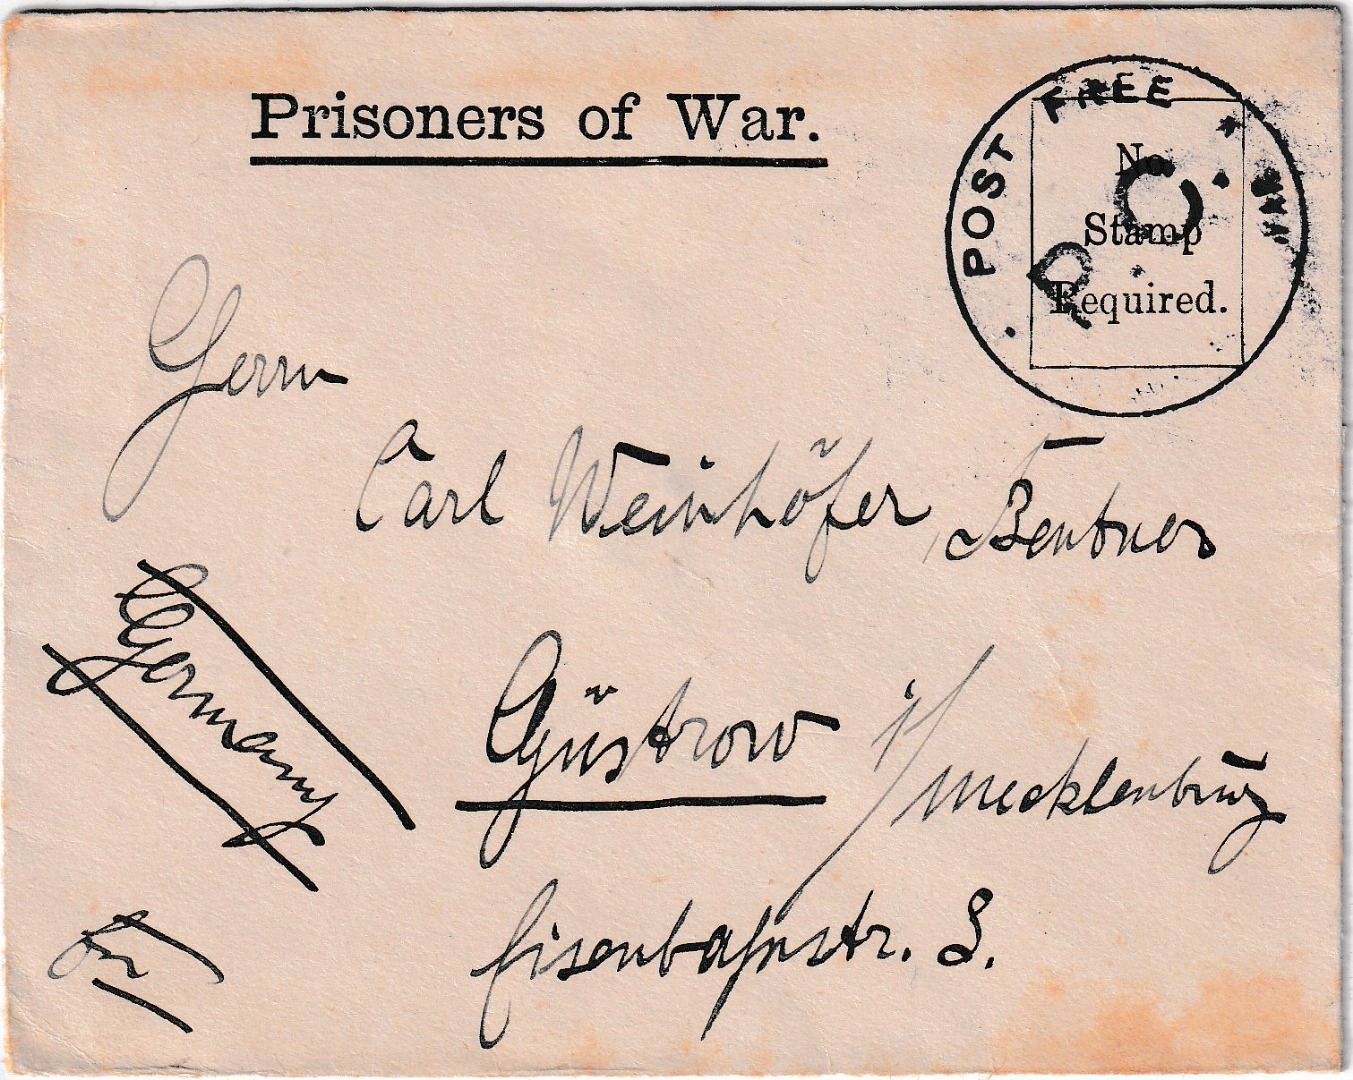 Prisoners of War.
POST FREE
P.C.
No
Stamp
Required.
Herrn
Carl Weinhöfer, Rentner
Germany
Güstrow i/Mecklenburg
Eisenbahnstr. 8.